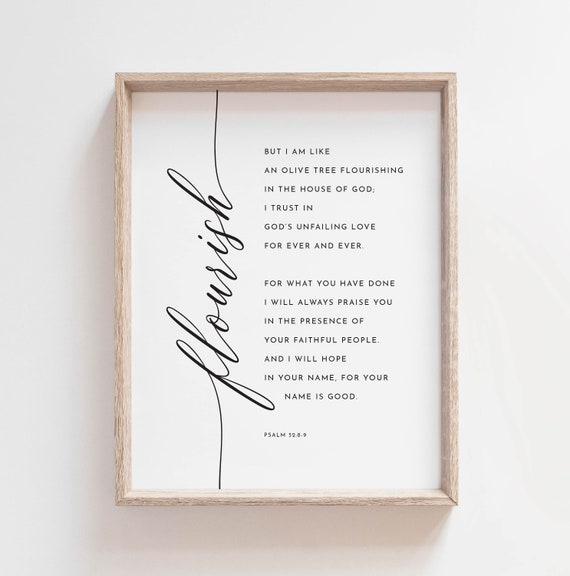 flourish
BUT I AM LIKE
AN OLIVE TREE FLOURISHING
IN THE HOUSE OF GOD;
I TRUST IN
GOD'S UNFAILING LOVE
FOR EVER AND EVER.
FOR WHAT YOU HAVE DONE
I WILL ALWAYS PRAISE YOU
IN THE PRESENCE OF
YOUR FAITHFUL PEOPLE.
AND I WILL HOPE
IN YOUR NAME, FOR YOUR
NAME IS GOOD.
PSALM 52:8-9